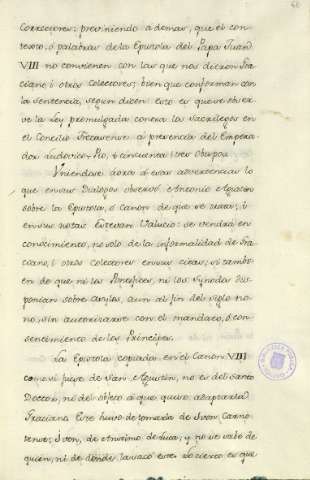 Correctores; previniendo ademas, que el con-
texto, ó palabras de la Epistola del Papa Juan
VIII no convienen con las que nos dieron Gra-
ciano i otros Colectores; bien que conforman con
la sentencia, segun dicen: esto es que se obser-
ve la Ley promulgada contra los sacrilegos en
el Concilio Trecarense à presencia del Empera-
dor Ludovico Pio, i cincuenta i tres obispos.
Uniendose aora á esas advertencias lo
que en sus Dialogos observó Antonio Agustin
sobre la Epistola, ó Canon de que se trata; i
en sus notas Estevan Valucio: se vendrá en
convencimiento, no solo de la informalidad de Gra-
ciano, i otros Colectores en sus citas; si tambi-
en de que ni los Pontifices, ni los Synodos dis-
ponian sobre asylos, aun al fin del siglo no-
no, sin autorizarse con el mandato, ó con-
sentimiento de los Principes.
La Epistola copiada en el Canon VIII
como si fuese de San Agustin, no es del Santo
Doctor, ni del objeto á que quiso adaptarla
Graciano. Este huvo de tomarla de Ivon Carno-
tense; Ivon, de Anselmo de Luca; y no se sabe de
quien, ni de donde la sacó este. Lo cierto es que